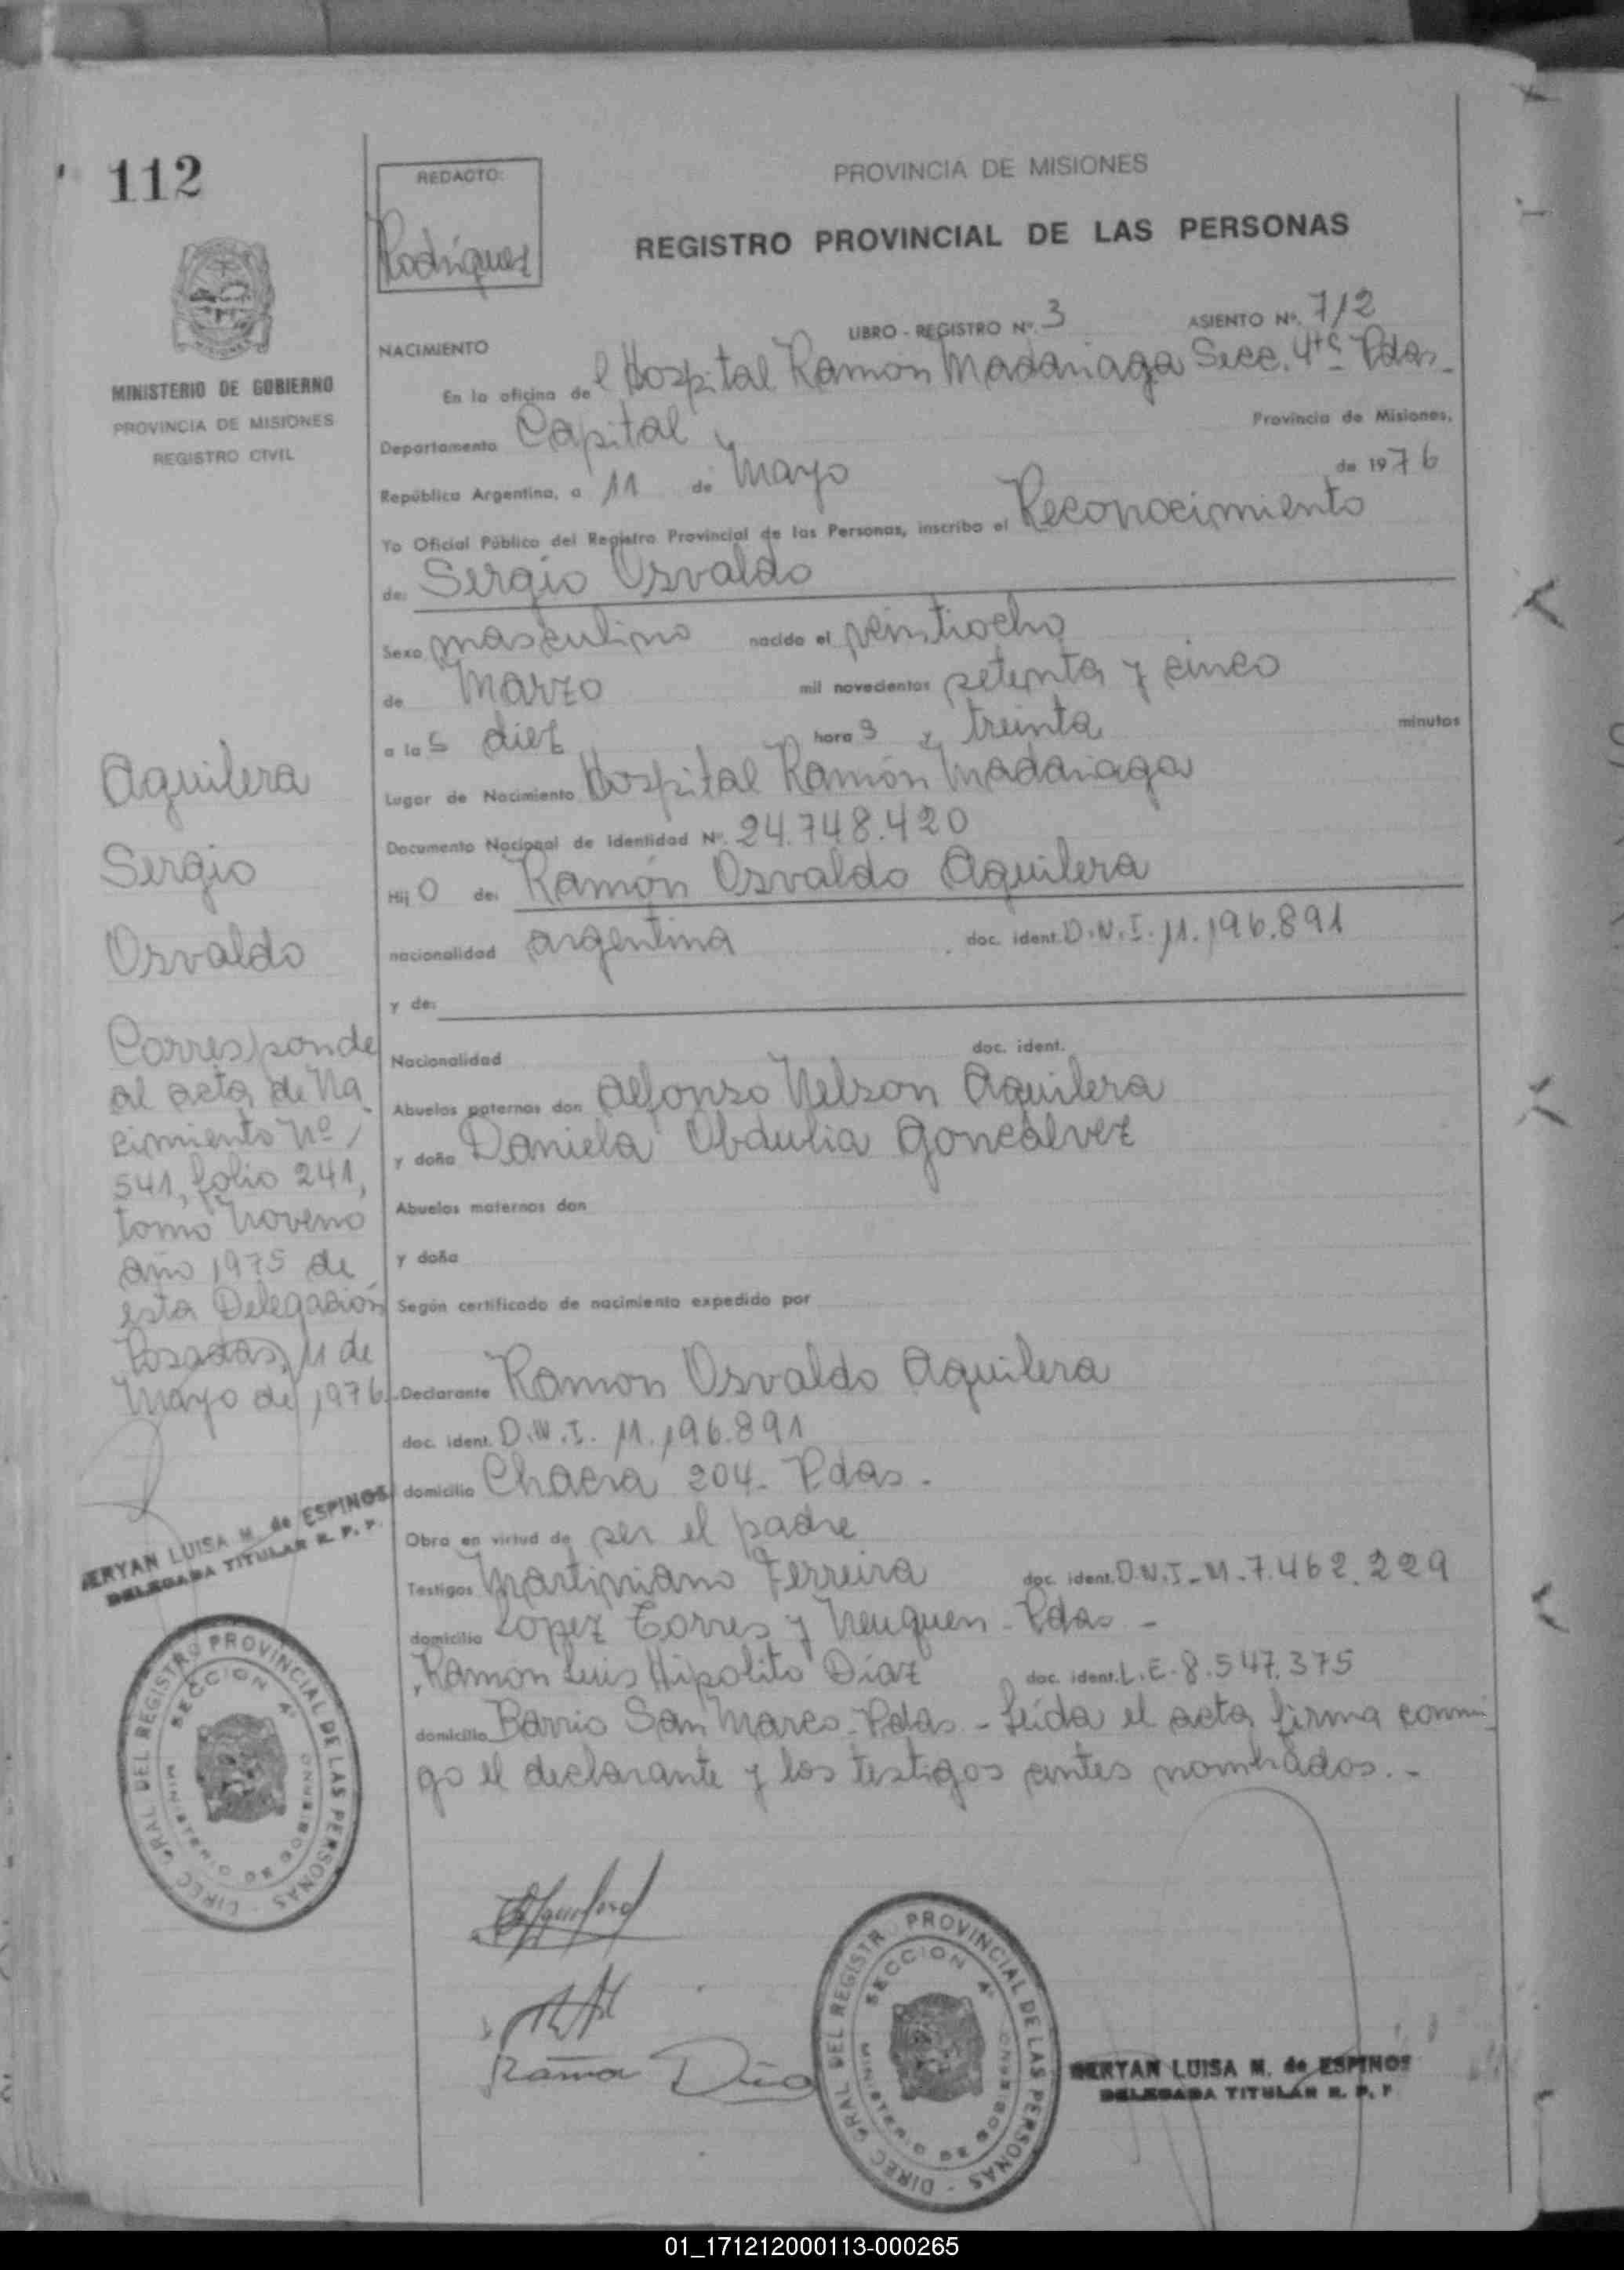 112
REDACTO:
Rodriguez
PROVINCIA DE MISIONES
REGISTRO PROVINCIAL DE LAS PERSONAS
MINISTERIO DE GOBIERNO
PROVINCIA DE MISIONES
REGISTRO CIVIL
LIBRO - REGISTRO Nº. 3 ASIENTO Nº. 712
NACIMIENTO
En la oficina del Hospital Ramón Madariaga Secc. 4ta Pdas.
Departamento Capital Provincia de Misiones,
República Argentina, a 11 de Mayo de 1976
Yo Oficial Público del Registro Provincial de las Personas, inscribo el Reconocimiento
de: Sergio Osvaldo
Sexo masculino nacido el veintiocho
de Marzo mil novecientos setenta y cinco
a las diez horas y treinta minutos
Lugar de Nacimiento Hospital Ramón Madariaga
Documento Nacional de Identidad Nº. 24.748.420
Hijo de: Ramón Osvaldo Aguilera
nacionalidad argentina doc. ident. D.N.I. 11.196.891
y de:
Nacionalidad doc. ident.
Abuelos paternos don Alfonso Nelson Aguilera
y doña Daniela Obdulia Goncalvez
Abuelos maternos don
y doña
Según certificado de nacimiento expedido por
Declarante Ramon Osvaldo Aguilera
doc. ident. D.N.I. 11.196.891
domicilio Chacra 204- Pdas.-
Obra en virtud de ser el padre
Testigos Martiniano Ferreira doc. ident. D.N.I-M-7.462.229
domicilio Lopez Torres y Neuquen - Pdas -
Ramon Luis Hipolito Díaz doc. ident. L.E-8.547.375
domicilio Barrio San Marco-Pdas - Leída el acta firma conmi-
go el declarante y los testigos antes nombrados.-
Aguilera
Sergio
Osvaldo
Corresponde
al acta de Na
cimiento Nº
541, folio 241,
tomo Noveno
año 1975 de
esta Delegación
Posadas, 11 de
Mayo de 1976.
MERYAN LUISA M. de ESPINOS
DELEGADA TITULAR R. P. P.
DIREC. GRAL DEL REGISTRO PROVINCIAL DE LAS PERSONAS
SECCION 4ª
MINISTERIO DE GOBIERNO
Ramon Diaz
DIREC. GRAL DEL REGISTR. PROVINCIAL DE LAS PERSONAS
SECCION 4ª
MINISTERIO DE GOBIERNO
MERYAN LUISA M. de ESPINOS
DELEGADA TITULAR R. P. P
01_171212000113-000265